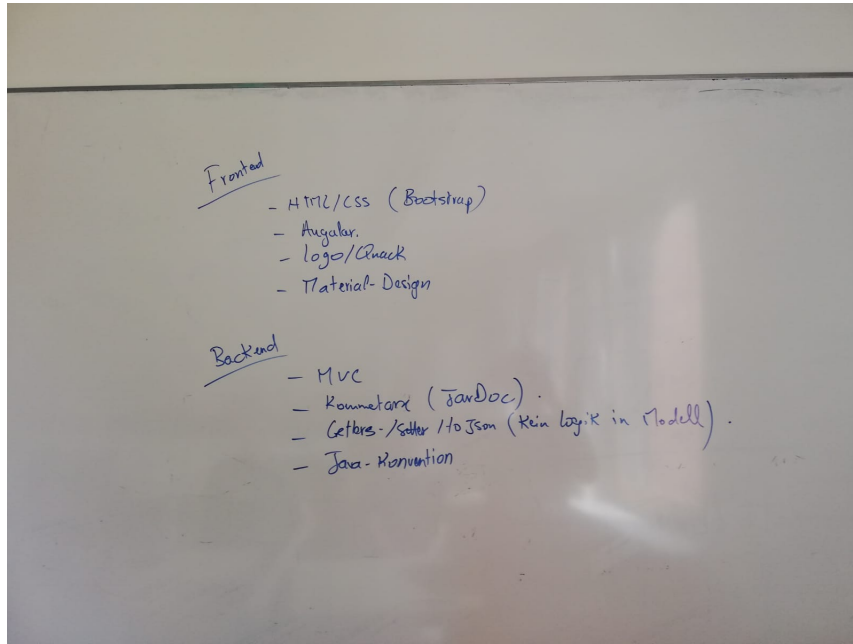 Fronted
- HTML/CSS (Bootstrap)
- Angular.
- Logo/Quack
- Material-Design
Backend
- MVC
- Kommetare (JavDoc).
- Getters-/Setter /toJson (Kein Logik in Modell).
- Java-Konvention